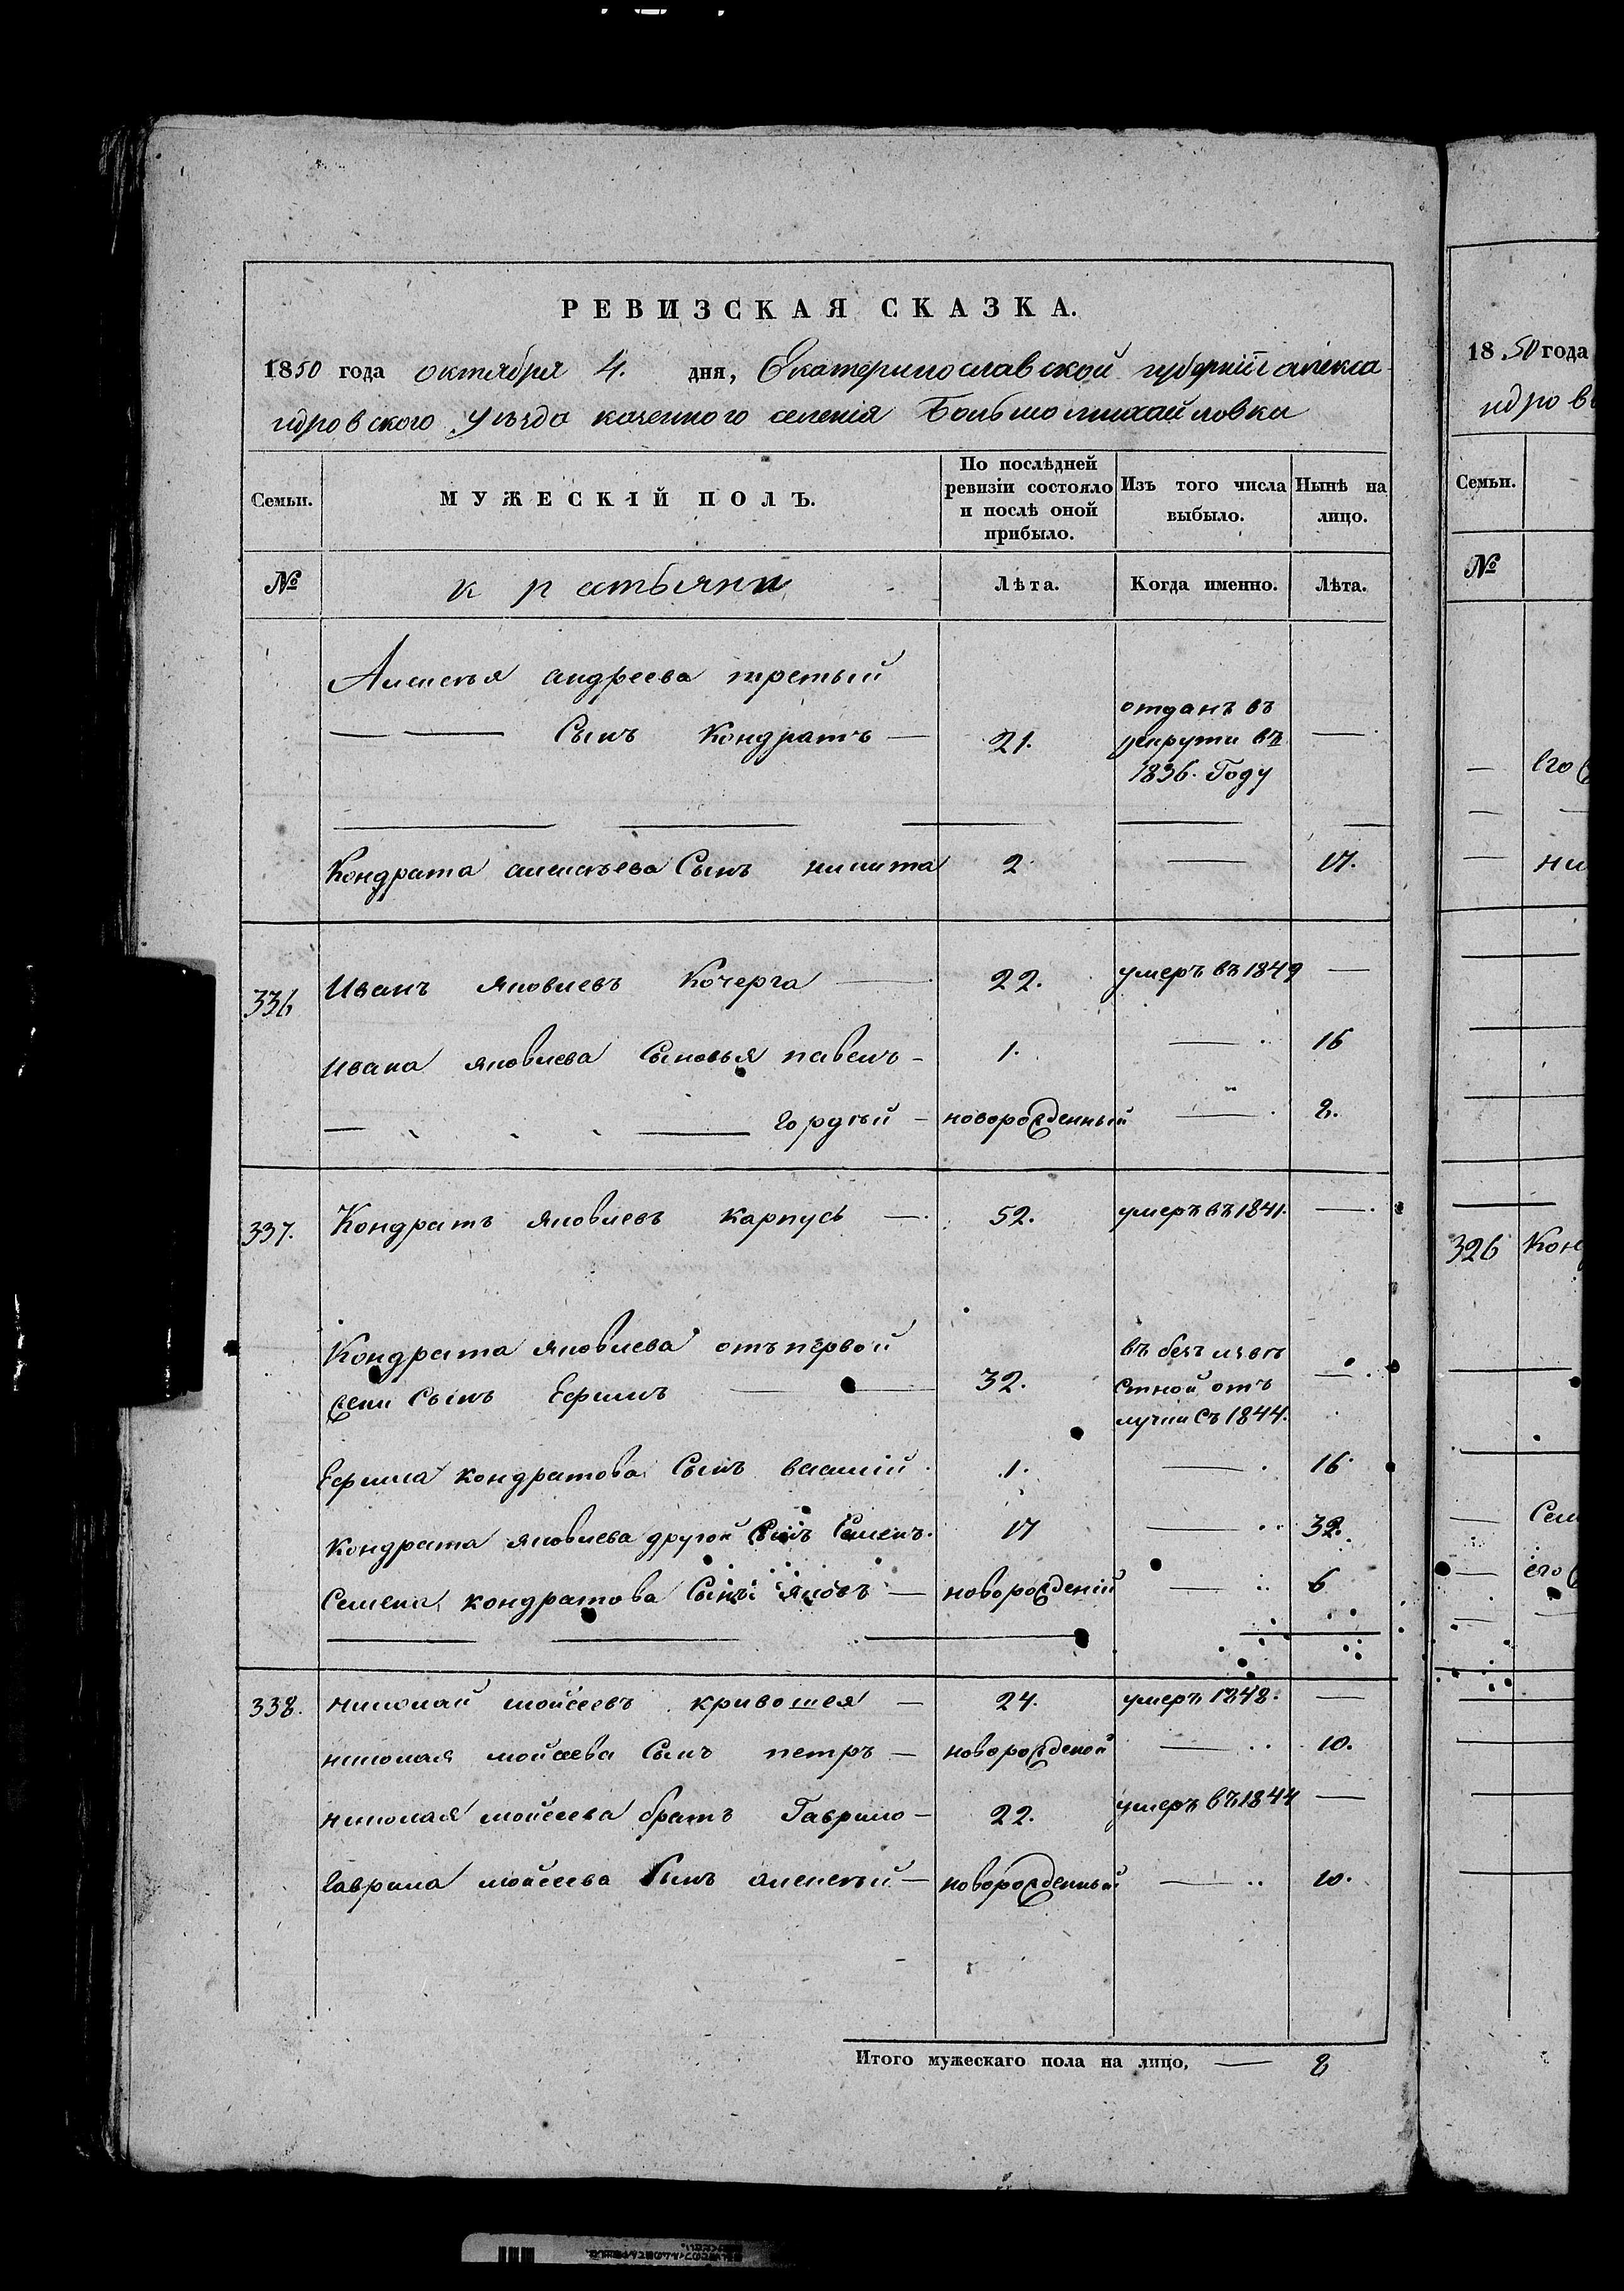 РЕВИЗСКАЯ СКАЗКА.
1850 года октября 4. дня, Екатеринославской губернii алекса-
ндровского уѣзда казенного селенiя Большомихайловки
Семьи. МУЖЕСКІЙ ПОЛЪ. По послѣдней ревизіи состояло и послѣ оной прибыло. Изъ того числа выбыло. Нынѣ на лицо.
№ крестьяни Лѣта. Когда именно. Лѣта.
Алексѣя андреева третьий
— — Сынъ Кондратъ — 21. отданъ въ рекрути въ 1836. Году —
Кондрата алексѣева Сынъ никита 2 — 17.
336 Иванъ яковлевъ Кочерга — 22. умеръ въ 1849 —
Ивана яковлева Сыновья павелъ - 1. — 16
— — гордѣй - новорожденный — 2.
337. Кондратъ яковлевъ карпусь — 52. умеръ въ 1841. —
Кондрата яковлева отъ первой
жени Сынъ Ефимъ — 32. въ безъ извѣстной отълучки съ 1844. —
Ефима кондратова Сынъ василий 1. — 16
Кондрата яковлева другой Сынъ Семенъ. 17 — 32.
Семена кондратова Сынъ яковъ — новорожденiй — 6
338. николай мойсеевъ кривошея — 24. умеръ 1848. —
николая мойсеева Сынъ петръ — новорожденой — 10.
николая мойсеева братъ Гаврило — 22. умеръ въ 1844 —
Гаврила мойсеева Сынъ алексѣй — новорожденный — 10.
Итого мужескаго пола на лицо, — 8
1850 года
ндров
Семьи.
№
— его
— ни
326 Конд
— Сем
— его